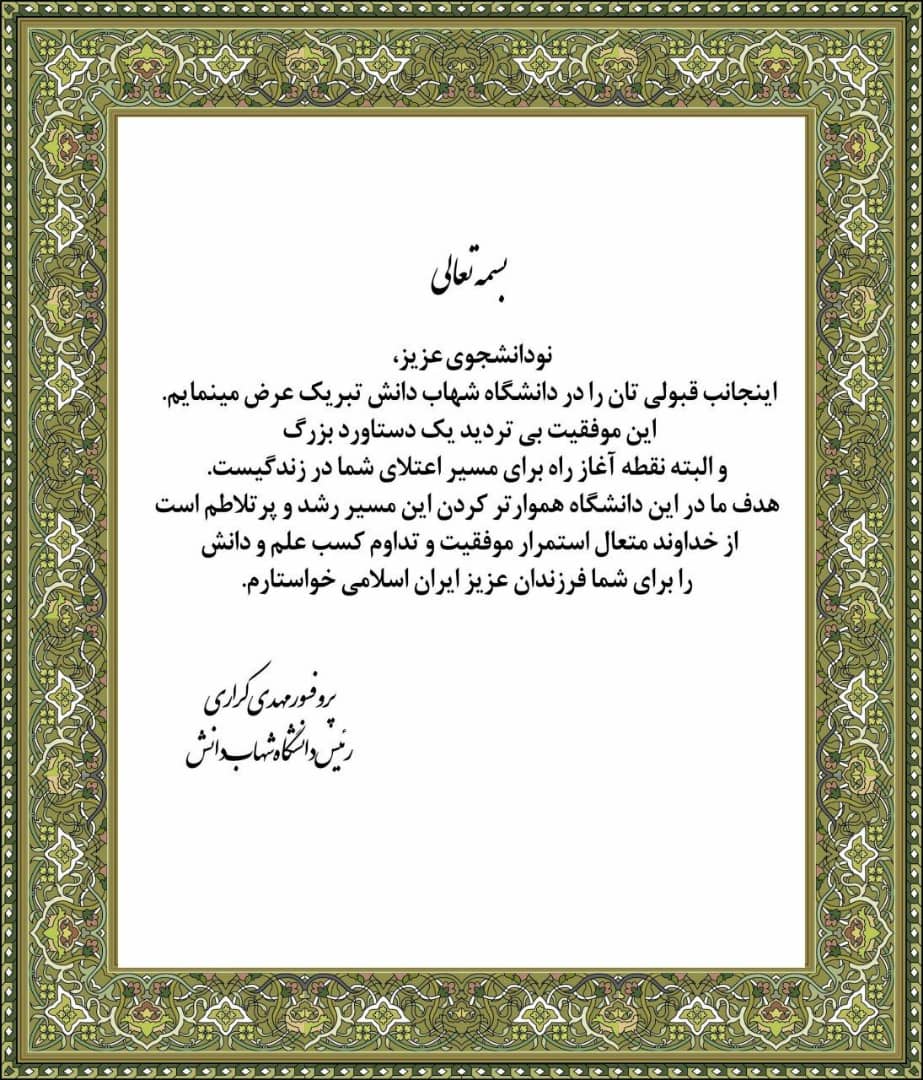 بسمه تعالی
نودانشجوی عزیز،
اینجانب قبولی تان را در دانشگاه شهاب دانش تبریک عرض مینمایم.
این موفقیت بی تردید یک دستاورد بزرگ
و البته نقطه آغاز راه برای مسیر اعتلای شما در زندگیست.
هدف ما در این دانشگاه هموارتر کردن این مسیر رشد و پرتلاطم است
از خداوند متعال استمرار موفقیت و تداوم کسب علم و دانش
را برای شما فرزندان عزیز ایران اسلامی خواستارم.
پروفسور مهدی کراری
رئیس دانشگاه شهاب دانش